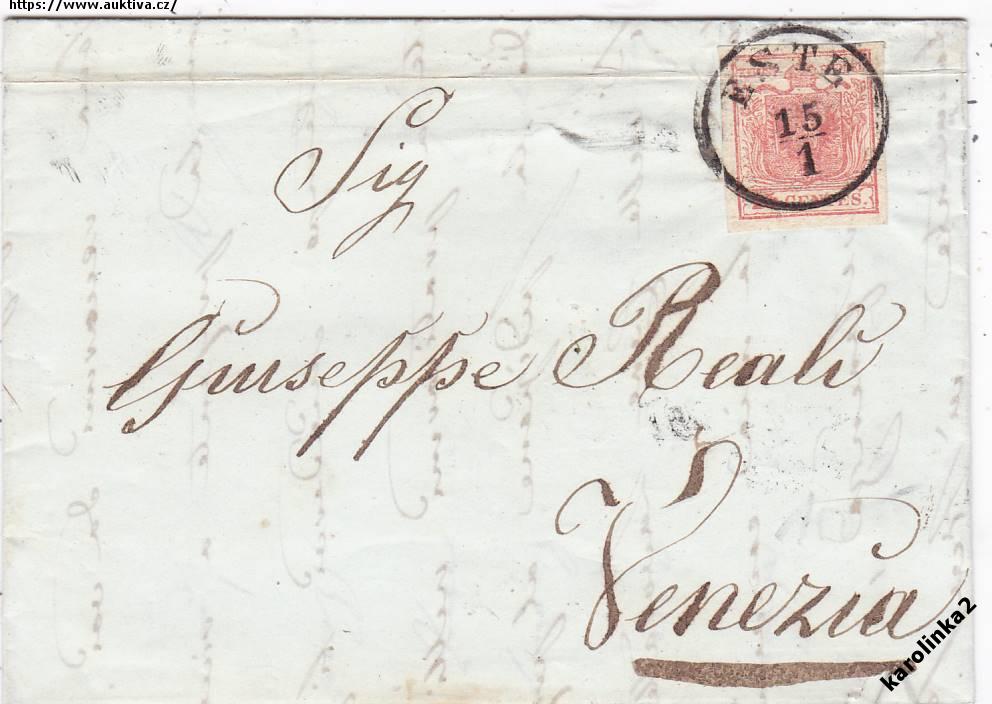 https://www.auktiva.cz/
ESTE
15
1
CENTES.
Sig
Giuseppe Reali
Venezia
karolinka2